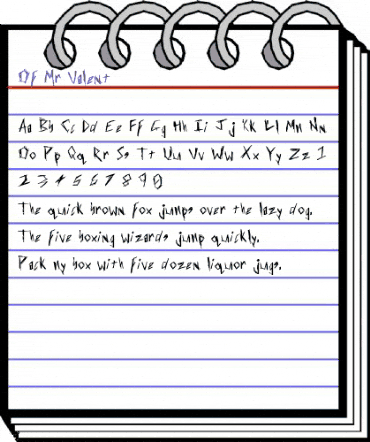 Of Mr Valent
Aa Bb Cc Dd Ee Ff Gg Hh Ii Jj Kk Ll Mm Nn
Oo Pp Qq Rr Ss Tt Uu Vv Ww Xx Yy Zz 1
2 3 4 5 6 7 8 9 0
The quick brown fox jumps over the lazy dog.
The five boxing wizards jump quickly.
Pack my box with five dozen liquor jugs.